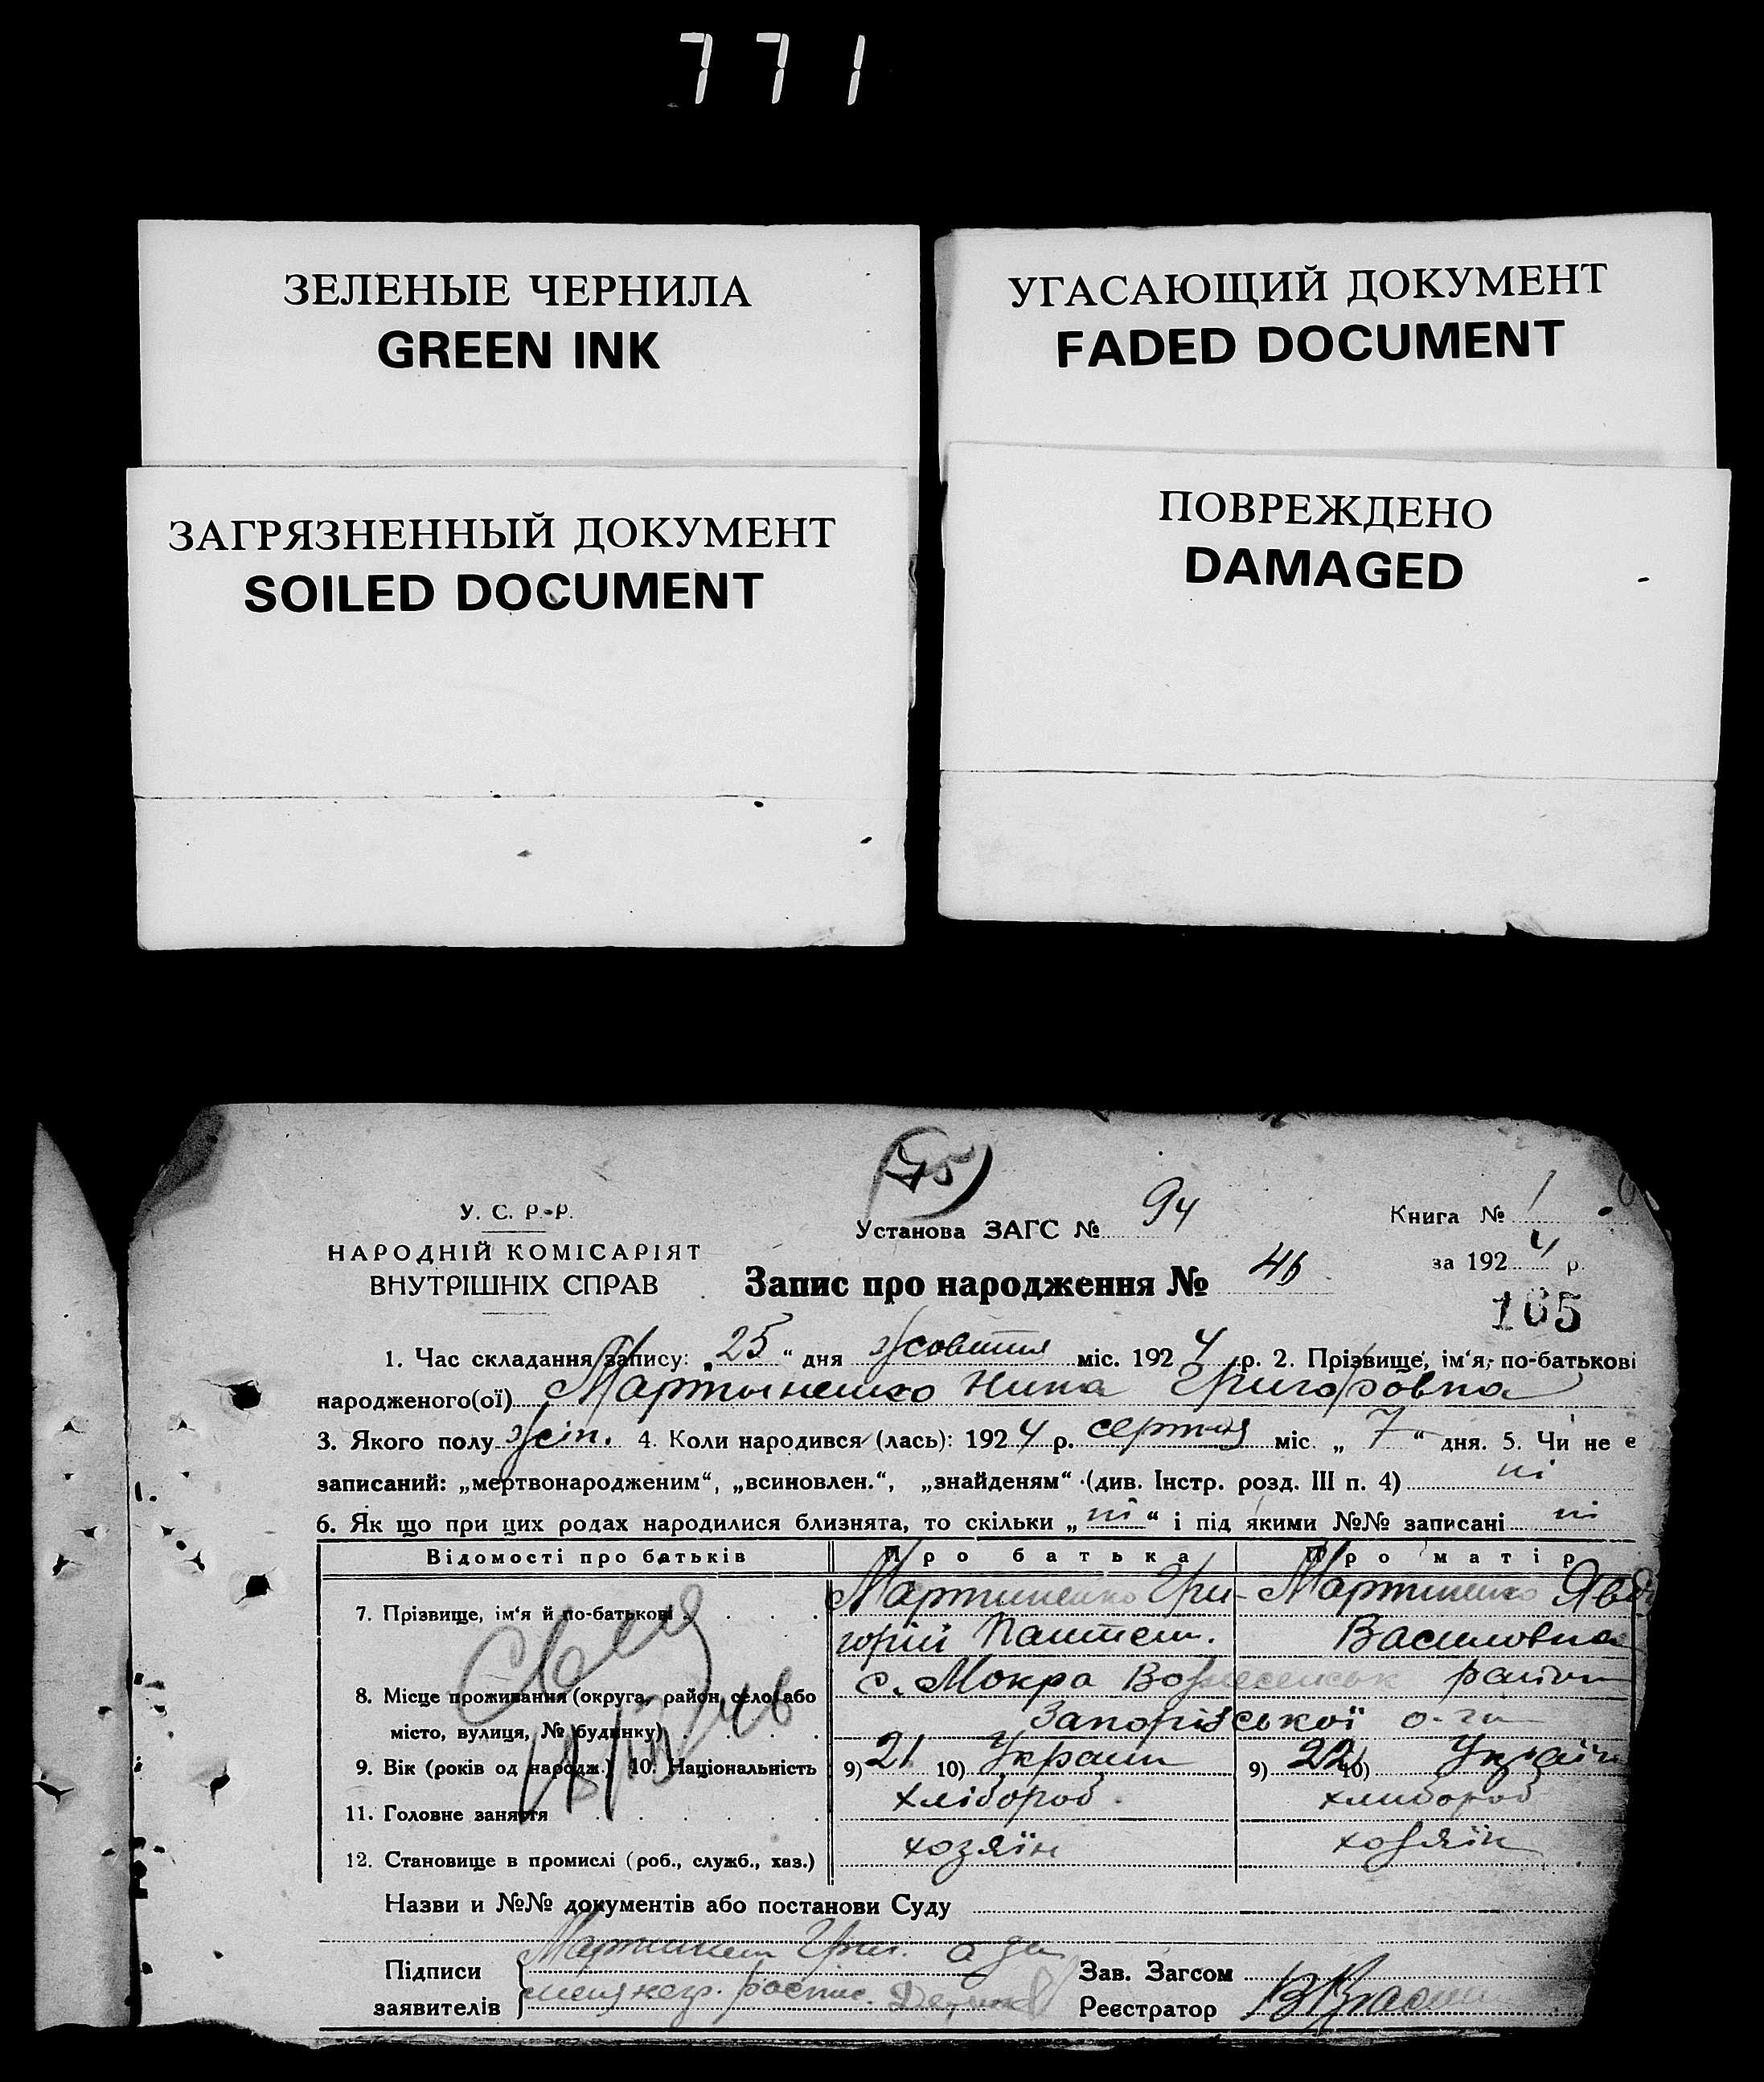 771
ЗЕЛЕНЫЕ ЧЕРНИЛА
GREEN INK
УГАСАЮЩИЙ ДОКУМЕНТ
FADED DOCUMENT
ЗАГРЯЗНЕННЫЙ ДОКУМЕНТ
SOILED DOCUMENT
ПОВРЕЖДЕНО
DAMAGED
У. С. Р-Р.
НАРОДНІЙ КОМІСАРІЯТ
ВНУТРІШНІХ СПРАВ
Установа ЗАГС № 94
Запис про народження №
Книга № 1
за 1924 р.
165
1. Час складання запису: „25“ дня жовтня міс. 1924 р. 2. Прізвище, ім'я, по-батькові
народженого(ої) Мартыненко Нина Григоровна
3. Якого полу жін. 4. Коли народився (лась): 1924 р. серпня міс. „7“ дня. 5. Чи не є
записаний: „мертвонародженим“, „всиновлен.“, „знайденям“ (див. Інстр. розд. III п. 4) ні
6. Як що при цих родах народилися близнята, то скільки „ні“ і під якими №№ записані ні
Відомості про батьків Про батька Про матір
7. Прізвище, ім'я й по-батькові Мартиненко Гри- Мартиненко
горій Пантел. Василовна
8. Місце проживання (округа, район, село або с. Мокра Вознесенськ район
місто, вулиця, № будинку) Запорізської о-ги
9. Вік (років од народж.) 10. Національність 9) 21 10) Україн 9) 22 10) Україн
11. Головне заняття хлібороб хлибороб
12. Становище в промислі (роб., служб., хаз.) хозяїн хозяїн
Назви и №№ документів або постанови Суду
Підписи Мартинен Григ. а за
заявителів негр. роспис.
Зав. Загсом
Реєстратор